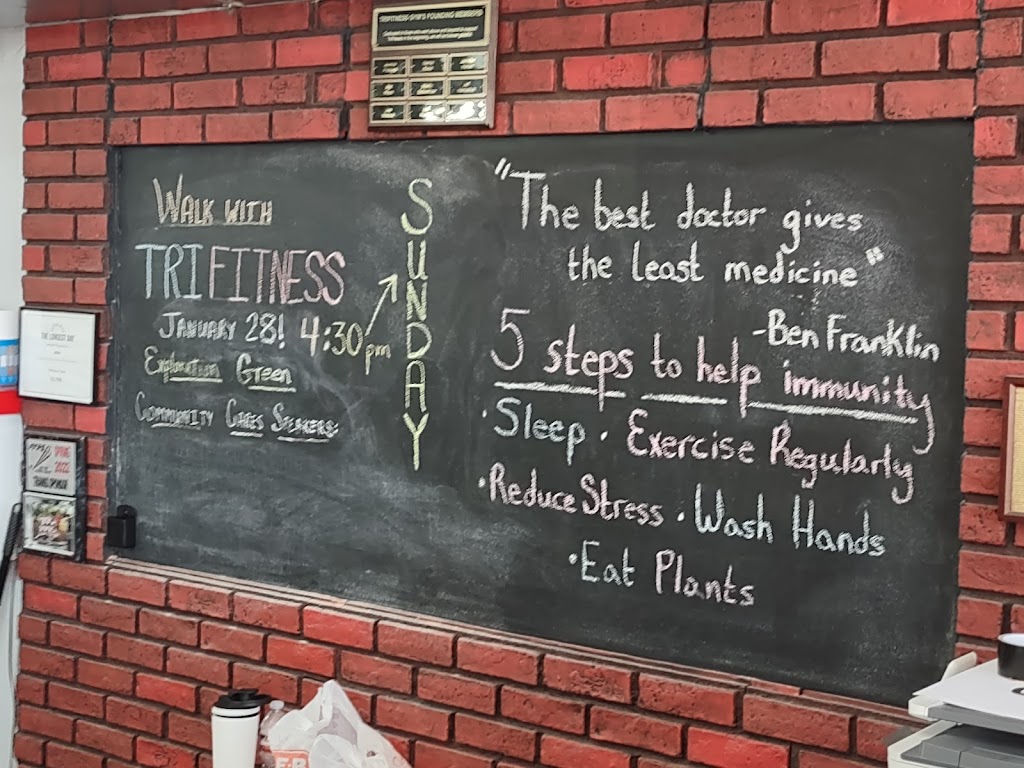 TRIFITNESS GYM'S FOUNDING MEMBERS
WALK WITH
TRIFITNESS
JANUARY 28! 4:30 pm
Exploration Green
COMMUNITY CARES SPEAKERS:
SUNDAY
"The best doctor gives
the least medicine"
-Ben Franklin
5 steps to help immunity
• Sleep • Exercise Regularly
• Reduce Stress • Wash Hands
• Eat Plants
THE LONGEST DAY